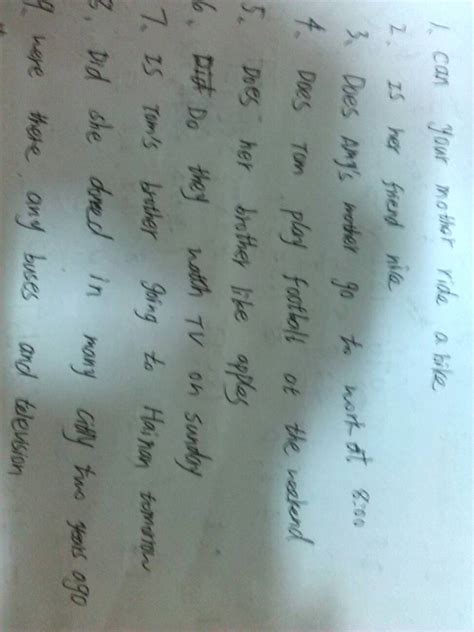 1. can your mother ride a bike
2. is her friend nice
3. Does Amy's mother go to work at 8:00
4. Does Tom play football at the weekend
5. Does her brother like apples
6. Do they watch TV on sunday
7. Is Tom's brother going to Hainan tomorrow
8. Did she in many two years ago
9. were there any buses and television